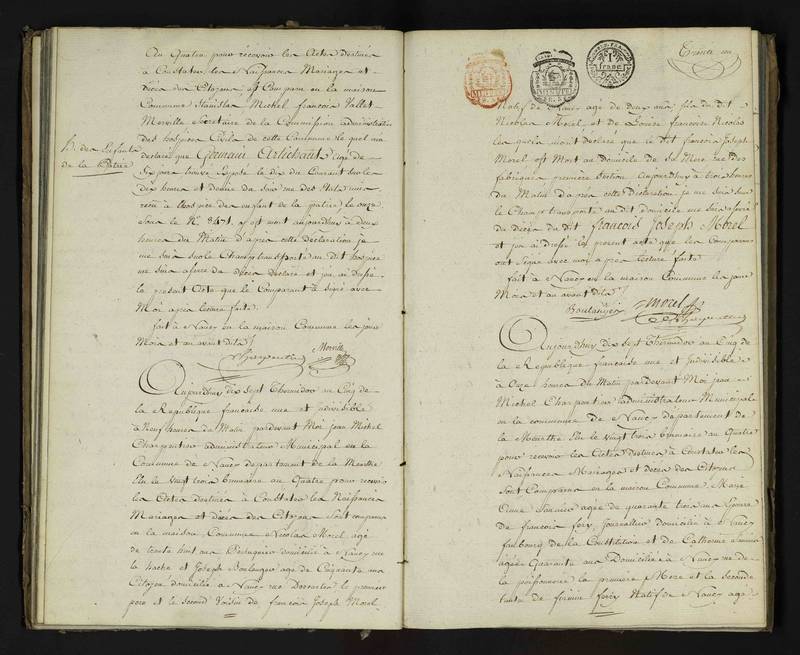 au Quatre pour recevoir les Actes destinés
à Constater les Naissances Mariages et
décès des Citoyens est Comparu en la maison
Commune Stanislas Michel françois Vallet
Morville Secretaire de la Commission administrative
des hospices Civils de cette Commune le quel m'a
H. des Enfants
de la Patrie
declaré que Germain Artichaut agé de
Six jours trouvé Exposé le dix du Courant sur les
dix heures et demie du soir
reçu à l'hospice des enfants de la patrie le onze
sous le N. 8471. est mort aujourd'huy à deux
heures du Matin d'après cette déclaration je
me suis sur le Champ transporté au dit hospice
me suis assuré du décès declaré et j'en ai dressé
le present Acte que le Comparant à signé avec
Moi après lecture faite.
fait à Nancy en la maison Commune les jour
Mois et an avant dits
Charpentier Morville
Aujourd'huy dix sept Thermidor an Cinq de
la Republique française une et indivisible
à Neuf heures du Matin pardevant Moi jean Michel
Charpentier administrateur Municipal en la
Commune de Nancy departement de la Meurthe
Elu le vingt trois brumaire an Quatre pour recevoir
les Actes destinés à Constater les Naissances
Mariages et décès des Citoyens Sont comparus
en la maison Commune Nicolas Morel agé
de trente huit ans Perruquier domicilié à Nancy rue
la hache et Joseph Boulanger agé de Cinquante ans
Citoyen domicilié à Nancy rue le premier
pere et le second Voisin de françois Joseph Morel
Trente un
Natif de Nancy agé de deux ans fils du dit
Nicolas Morel, et de Louise françoise Nicolas
lesquels m'ont declaré que le dit françois Joseph
Morel est Mort au domicile de Son Pere rue des
fabriques premiere Section aujourd'huy à trois heures
du Matin d'après cette Declaration je me suis sur
le Champ transporté au dit domicile me suis assuré
du Décès du dit françois Joseph Morel
et j'en ai dressé le present acte que les Comparans
ont Signé avec moi après lecture faite
fait à Nancy en la maison Commune les jour
Mois et an avant dits
Boulanger Morel
Charpentier
Aujourd'huy dix sept Thermidor an Cinq de
la Republique française une et indivisible
à Onze heures du Matin pardevant Moi jean
Michel Charpentier administrateur Municipale
en la commune de Nancy departement de
la Meurthe Elu le vingt trois brumaire an Quatre
pour recevoir les Actes destinés à Constater les
Naissances Mariages et décès des Citoyens
Sont Comparus en la maison Commune Marie
Anne agée de quarante trois ans Epouse
de francois foix, journallier domicilié à Nancy
faubourg de la Constitution et de Catherine
agée de Quarante ans Domiciliée à Nancy rue de
la poissonnerie la premiere Mere et la seconde
tante de foix Natif de Nancy agé